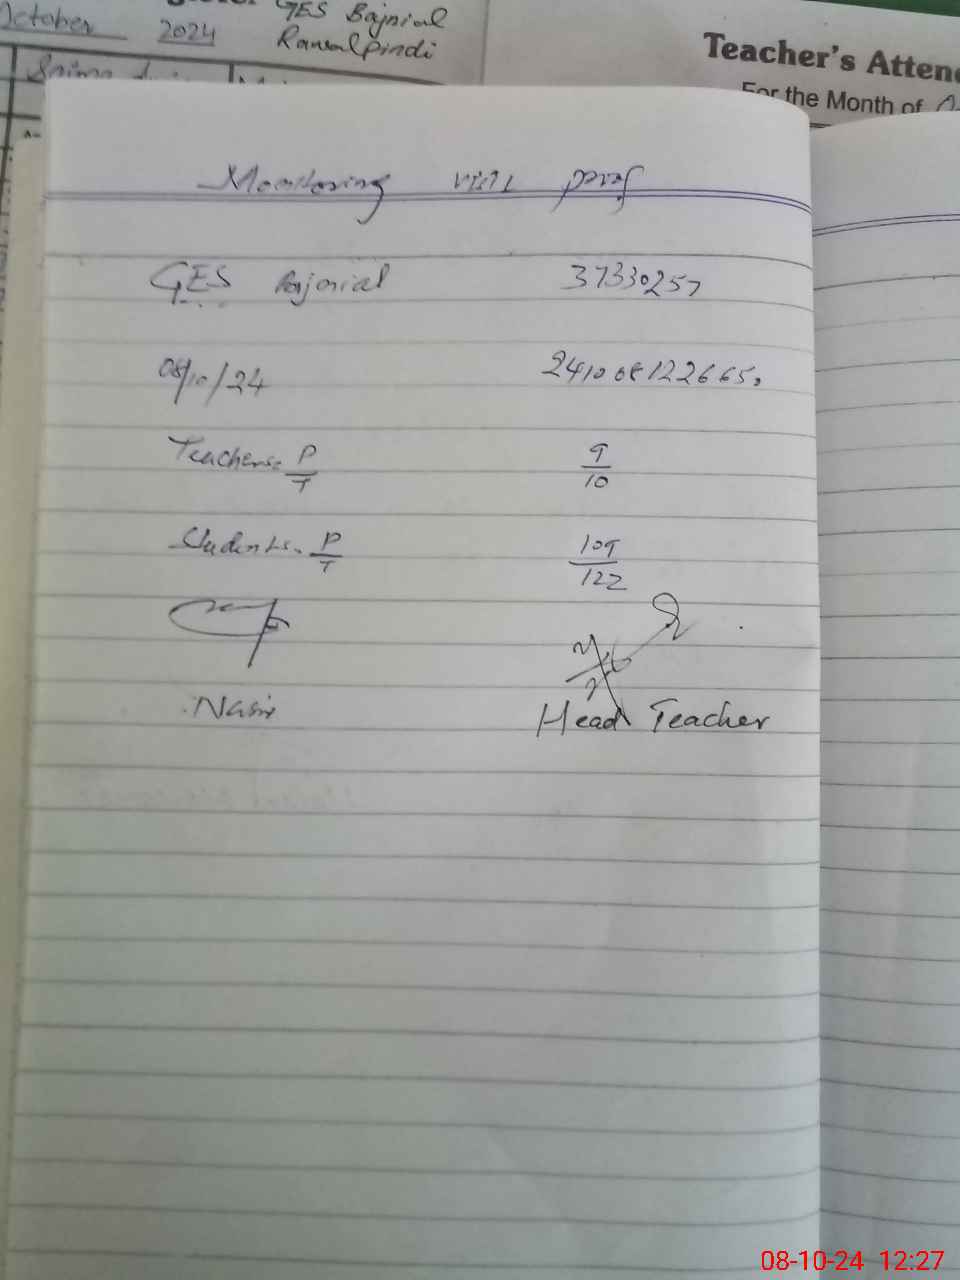 October 2024 GES Bajnial
Rawalpindi
Saima
Teacher's Atten
For the Month of
Monitoring visit proof
GES Bajnial 37330257
08/10/24 241008122665
Teachers= P/T 9/10
Students. P/T 109/122
Nasir Head Teacher
08-10-24 12:27